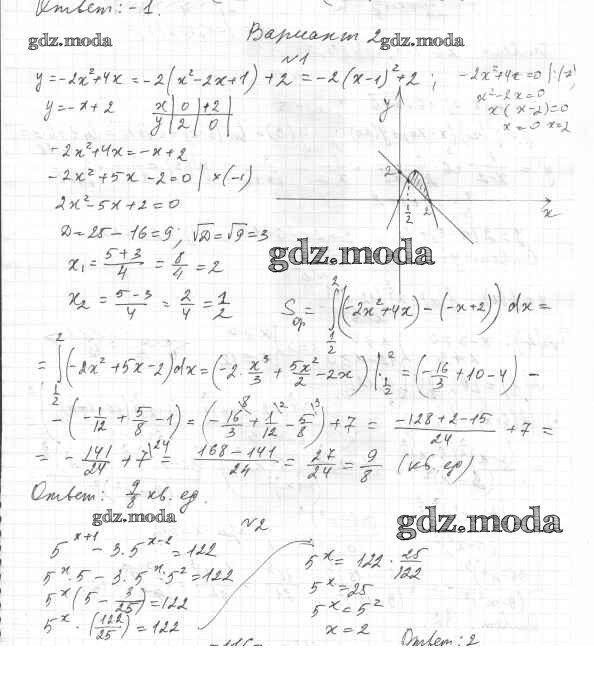 Ответ: -1.
gdz.moda
Вариант 2
gdz.moda
№1
y = -2x² + 4x = -2(x² - 2x + 1) + 2 = -2(x - 1)² + 2 ;
-2x² + 4x = 0 | :(-2)
x² - 2x = 0
x·(x - 2) = 0
x = 0 x = 2
y = -x + 2
x | 0 | +2 |
y | 2 | 0 |
-2x² + 4x = -x + 2
-2x² + 5x - 2 = 0 | ×(-1)
2x² - 5x + 2 = 0
D = 25 - 16 = 9 ; √D = √9 = 3
x₁ = (5 + 3)/4 = 8/4 = 2
x₂ = (5 - 3)/4 = 2/4 = 1/2
y
2
1/2
2
x
gdz.moda
Sф = ∫ 2 1/2 ((-2x² + 4x) - (-x + 2)) dx =
= ∫ 2 1/2 (-2x² + 5x - 2) dx = (-2 · x³/3 + 5x²/2 - 2x) | 2 1/2 = (-16/3 + 10 - 4) -
- (-1/12 + 5/8 - 1) = (-16/3 + 1/12 - 5/8) + 7 = (-128 + 2 - 15)/24 + 7 =
= -141/24 + 7 = (168 - 141)/24 = 27/24 = 9/8 (кв. ед)
Ответ: 9/8 кв. ед.
gdz.moda
gdz.moda
№2
5ˣ⁺¹ - 3·5ˣ⁻² = 122
5ˣ·5 - 3·5ˣ:5² = 122
5ˣ(5 - 3/25) = 122
5ˣ · (122/25) = 122
5ˣ = 122 · 25/122
5ˣ = 25
5ˣ = 5²
x = 2
Ответ: 2